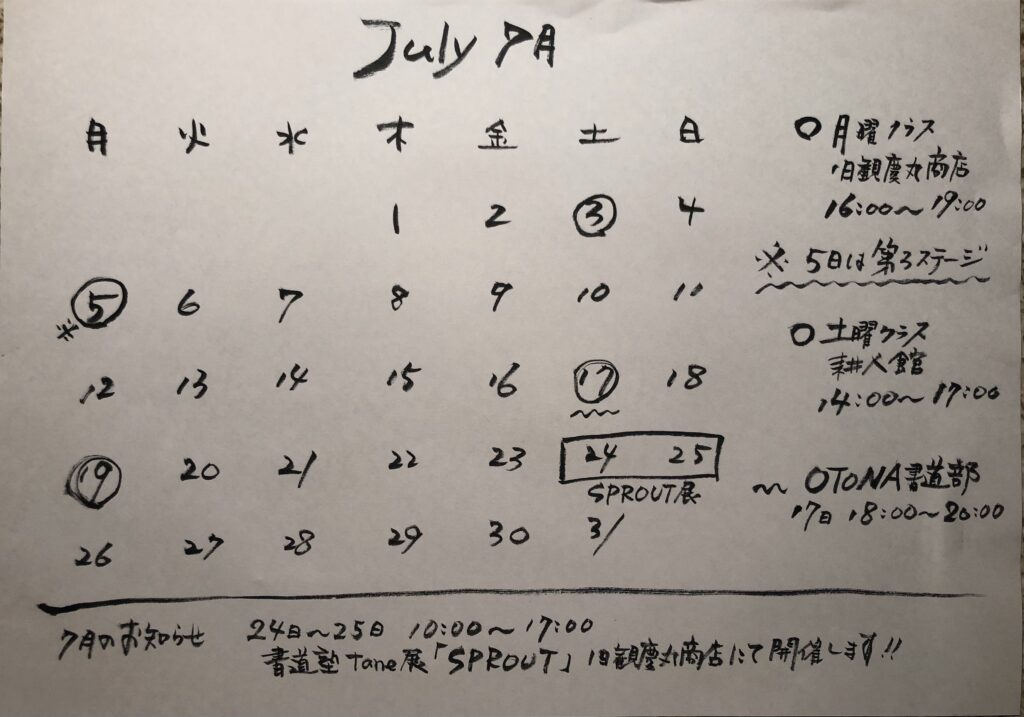 July 7月
月 火 水 木 金 土 日
1 2 3 4
5 6 7 8 9 10 11
※
12 13 14 15 16 17 18
19 20 21 22 23 24 25
SPROUT展
26 27 28 29 30 31
○月曜クラス
旧観慶丸商店
16:00〜19:00
※ 5日は第3ステージ
○土曜クラス
耕人館
14:00〜17:00
〜 OTONA書道部
17日 18:00〜20:00
7月のお知らせ 24日〜25日 10:00〜17:00
書道塾Tane展「SPROUT」旧観慶丸商店にて開催します!!